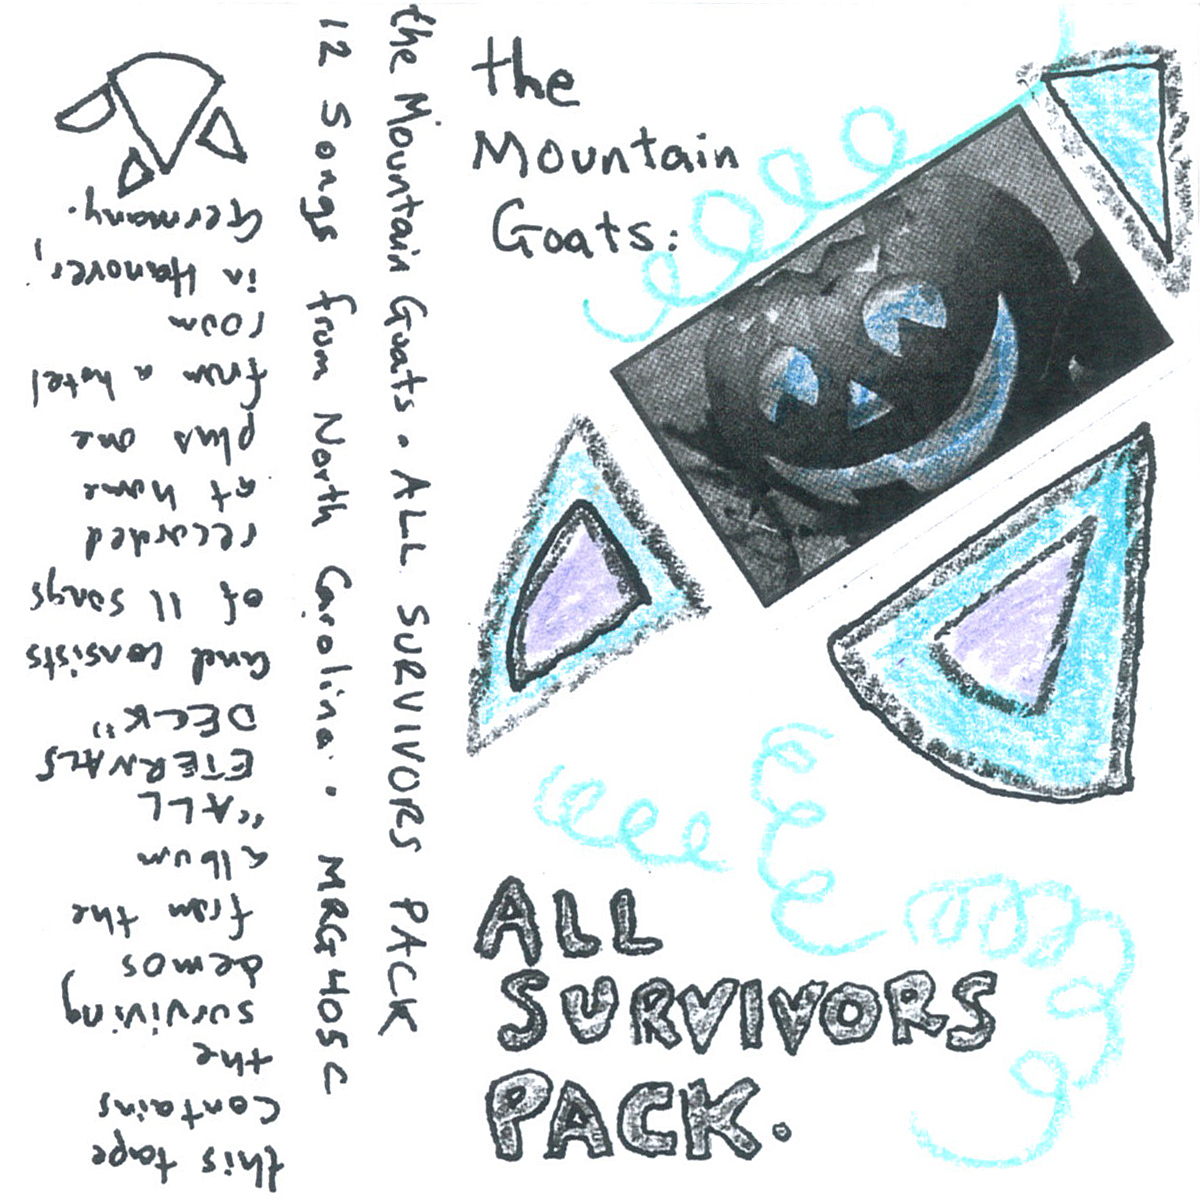 the
Mountain
Goats:
ALL
SURVIVORS
PACK.
the Mountain Goats • ALL SURVIVORS PACK
12 Songs from North Carolina • MRG405C
this tape
contains
the
surviving
demos
from the
album
"ALL
ETERNALS
DECK"
and consists
of 11 songs
recorded
at home
plus one
from a hotel
room
in Hanover,
Germany.